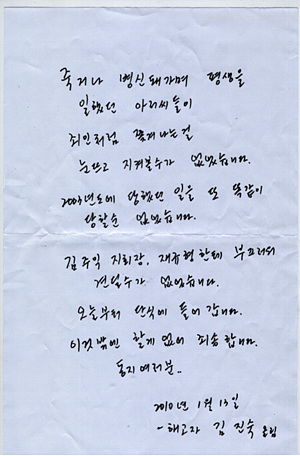 죽거나 병신돼가며 평생을
일했던 아저씨들이
죄인처럼 쫓겨나는걸
눈뜨고 지켜볼수가 없었습니다.
2003년도에 당했던 일을 또 똑같이
당할순 없었습니다.
김주익 지회장, 재규형한테 부끄러워
견딜수가 없었습니다.
오늘부터 단식에 들어갑니다.
이것밖엔 할게 없어 죄송합니다.
동지여러분..
2010년 1월 13일
- 해고자 김진숙 올림